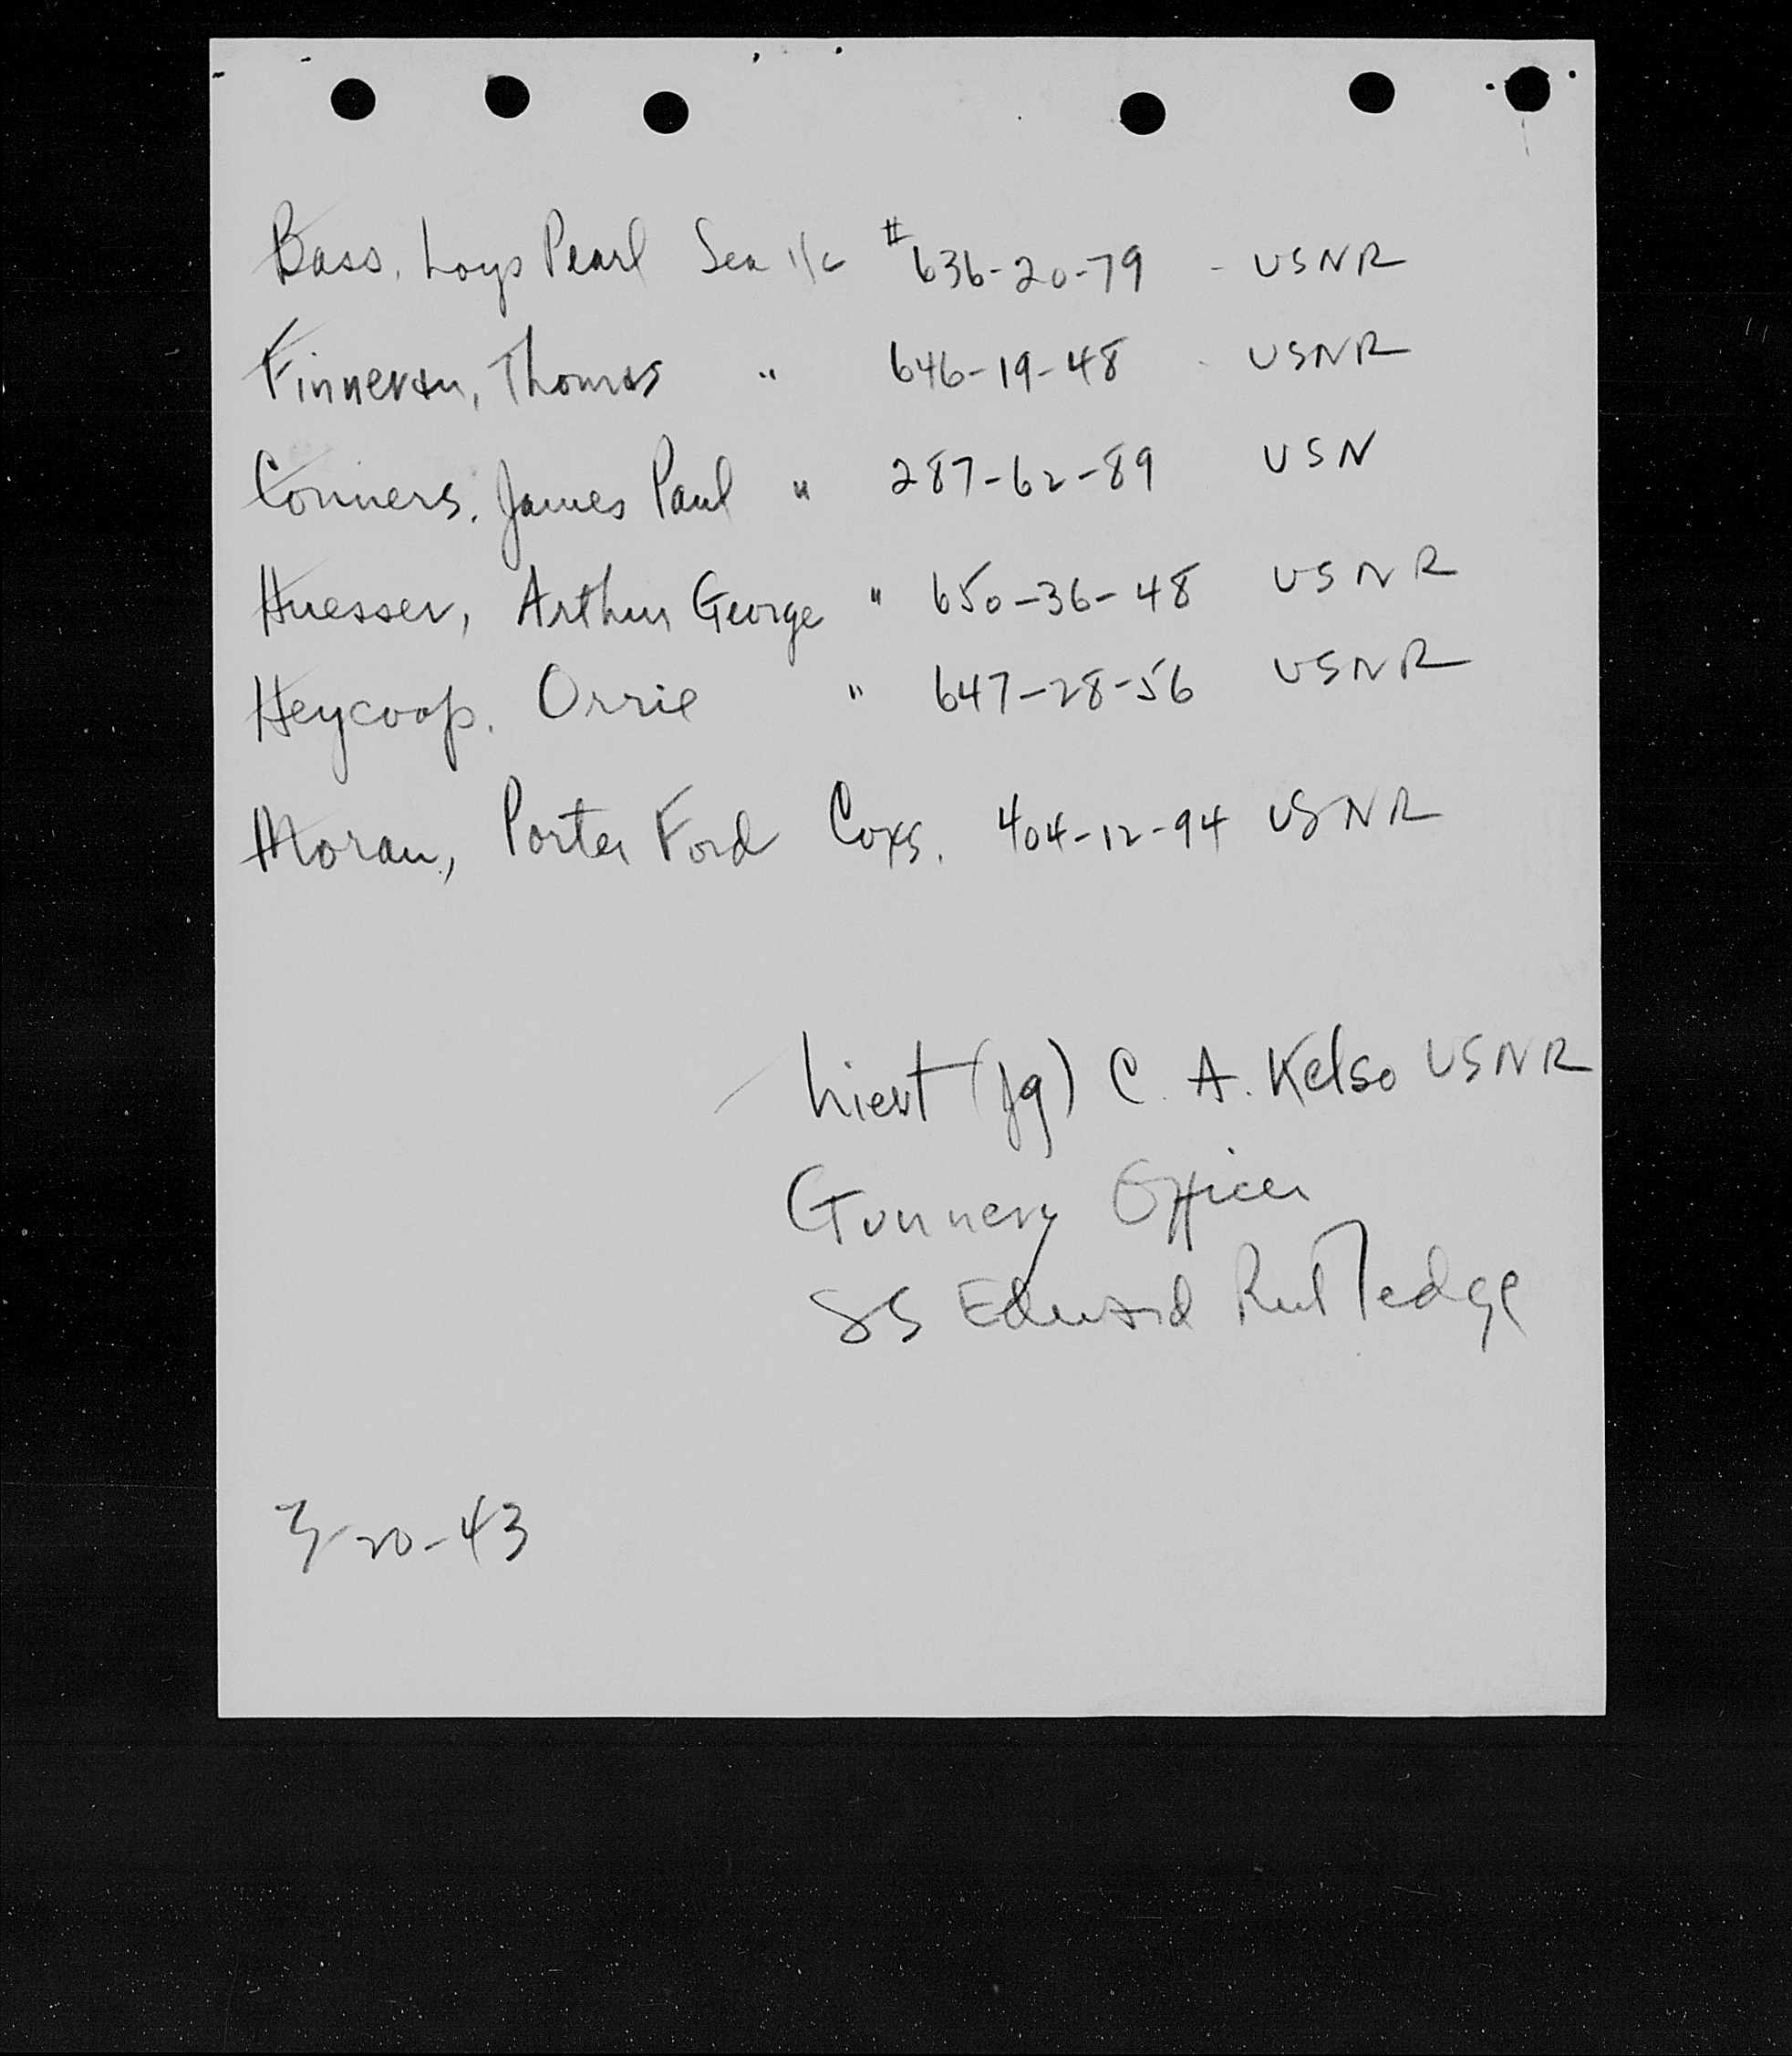 Bass, Loys Pearl Sea 1/c #636-20-79 - USNR
Finneran, Thomas " 646-19-48 - USNR
Conners, James Paul " 287-62-89 USN
Huesser, Arthur George " 650-36-48 USNR
Heycoop, Orrie " 647-28-56 USNR
Moran, Porter Ford Coxs. 404-12-94 USNR
Lieut (jg) C. A. Kelso USNR
Gunnery Officer
SS Edward Rutledge
3-20-43